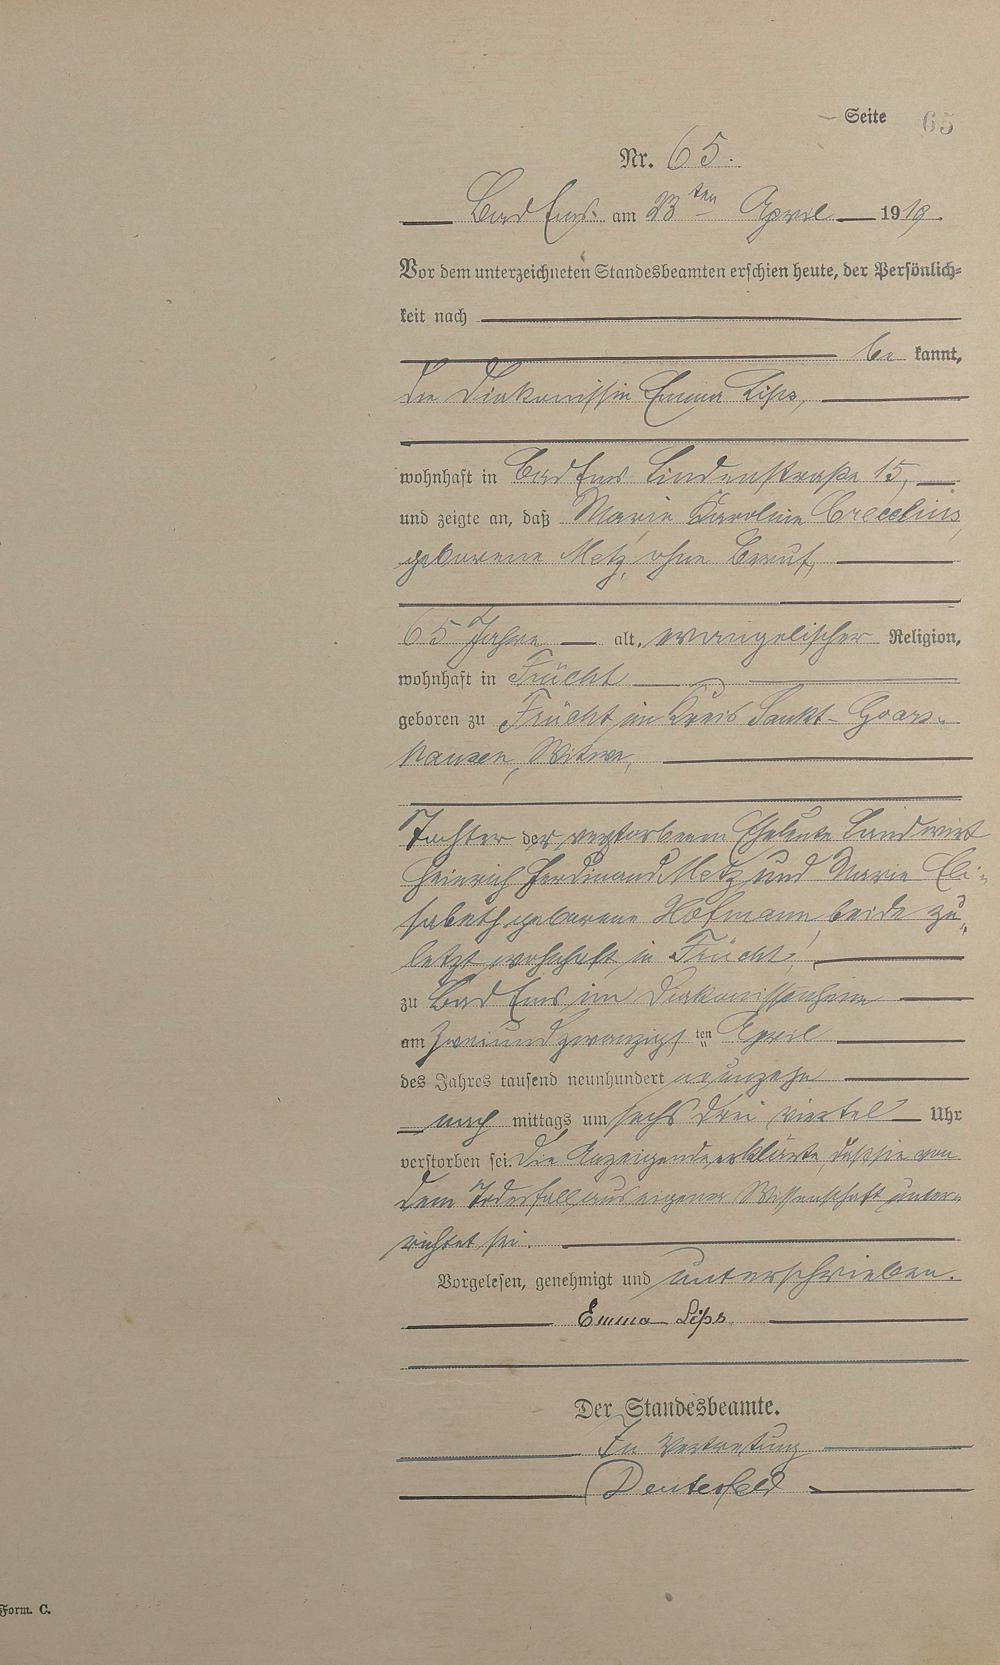 Seite 65
Nr. 65.
Bad Ems am 23ten April 1919.
Vor dem unterzeichneten Standesbeamten erschien heute, der Persönlich=
keit nach
be kannt,
die Diakonissin Emma Lips,
wohnhaft in Bad Ems Lindenstraße 15,
und zeigte an, daß Marie Karoline Crecelius,
geborene Metz, ohne Beruf,
65 Jahre alt, evangelischer Religion,
wohnhaft in Frücht
geboren zu Frücht im Kreis Sankt-Goars-
hausen, Witwe,
Tochter der verstorbenen Eheleute Landwirt
Heinrich Ferdinand Metz und Marie Eli-
sabeth geborene Hofmann, beide zu-
letzt wohnhaft in Frücht,
zu Bad Ems im Diakonissenheim
am zweiundzwanzigsten April
des Jahres tausend neunhundert neunzehn
nach mittags um sechs drei viertel Uhr
verstorben sei. Die Anzeigende erklärte, daß sie von
dem Todesfall aus eigener Wissenschaft unter-
richtet sei.
Vorgelesen, genehmigt und unterschrieben.
Emma Lips
Der Standesbeamte.
In Vertretung
Form. C.